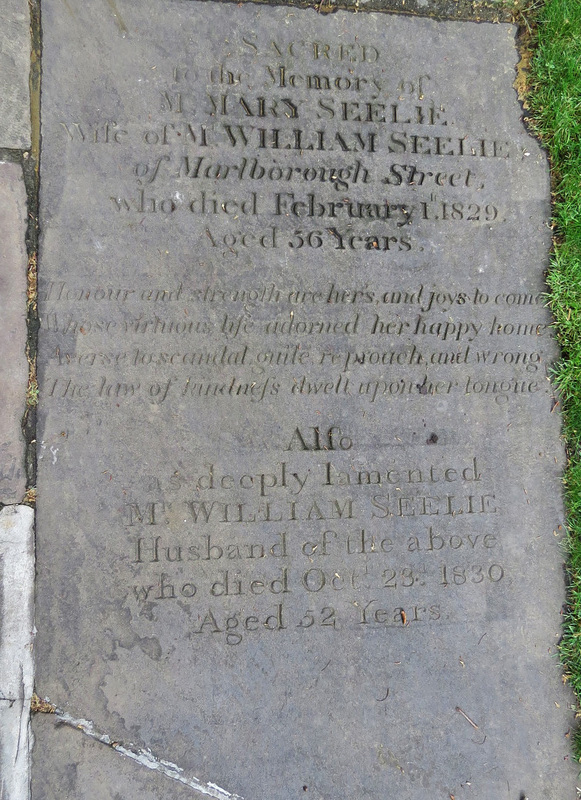 SACRED
to the Memory of
Mrs MARY SEELIE
Wife of Mr WILLIAM SEELIE
of Marlborough Street,
who died February 1st, 1829.
Aged 56 Years.
Honour and strength are her's, and joys to come
Whose virtuous life adorned her happy home
Averse to scandal, guile, reproach, and wrong
The law of kindneſs dwelt upon her tongue
Alſo
as deeply lamented
Mr WILLIAM SEELIE
Husband of the above
who died Octr 23rd 1830,
Aged 52 Years.